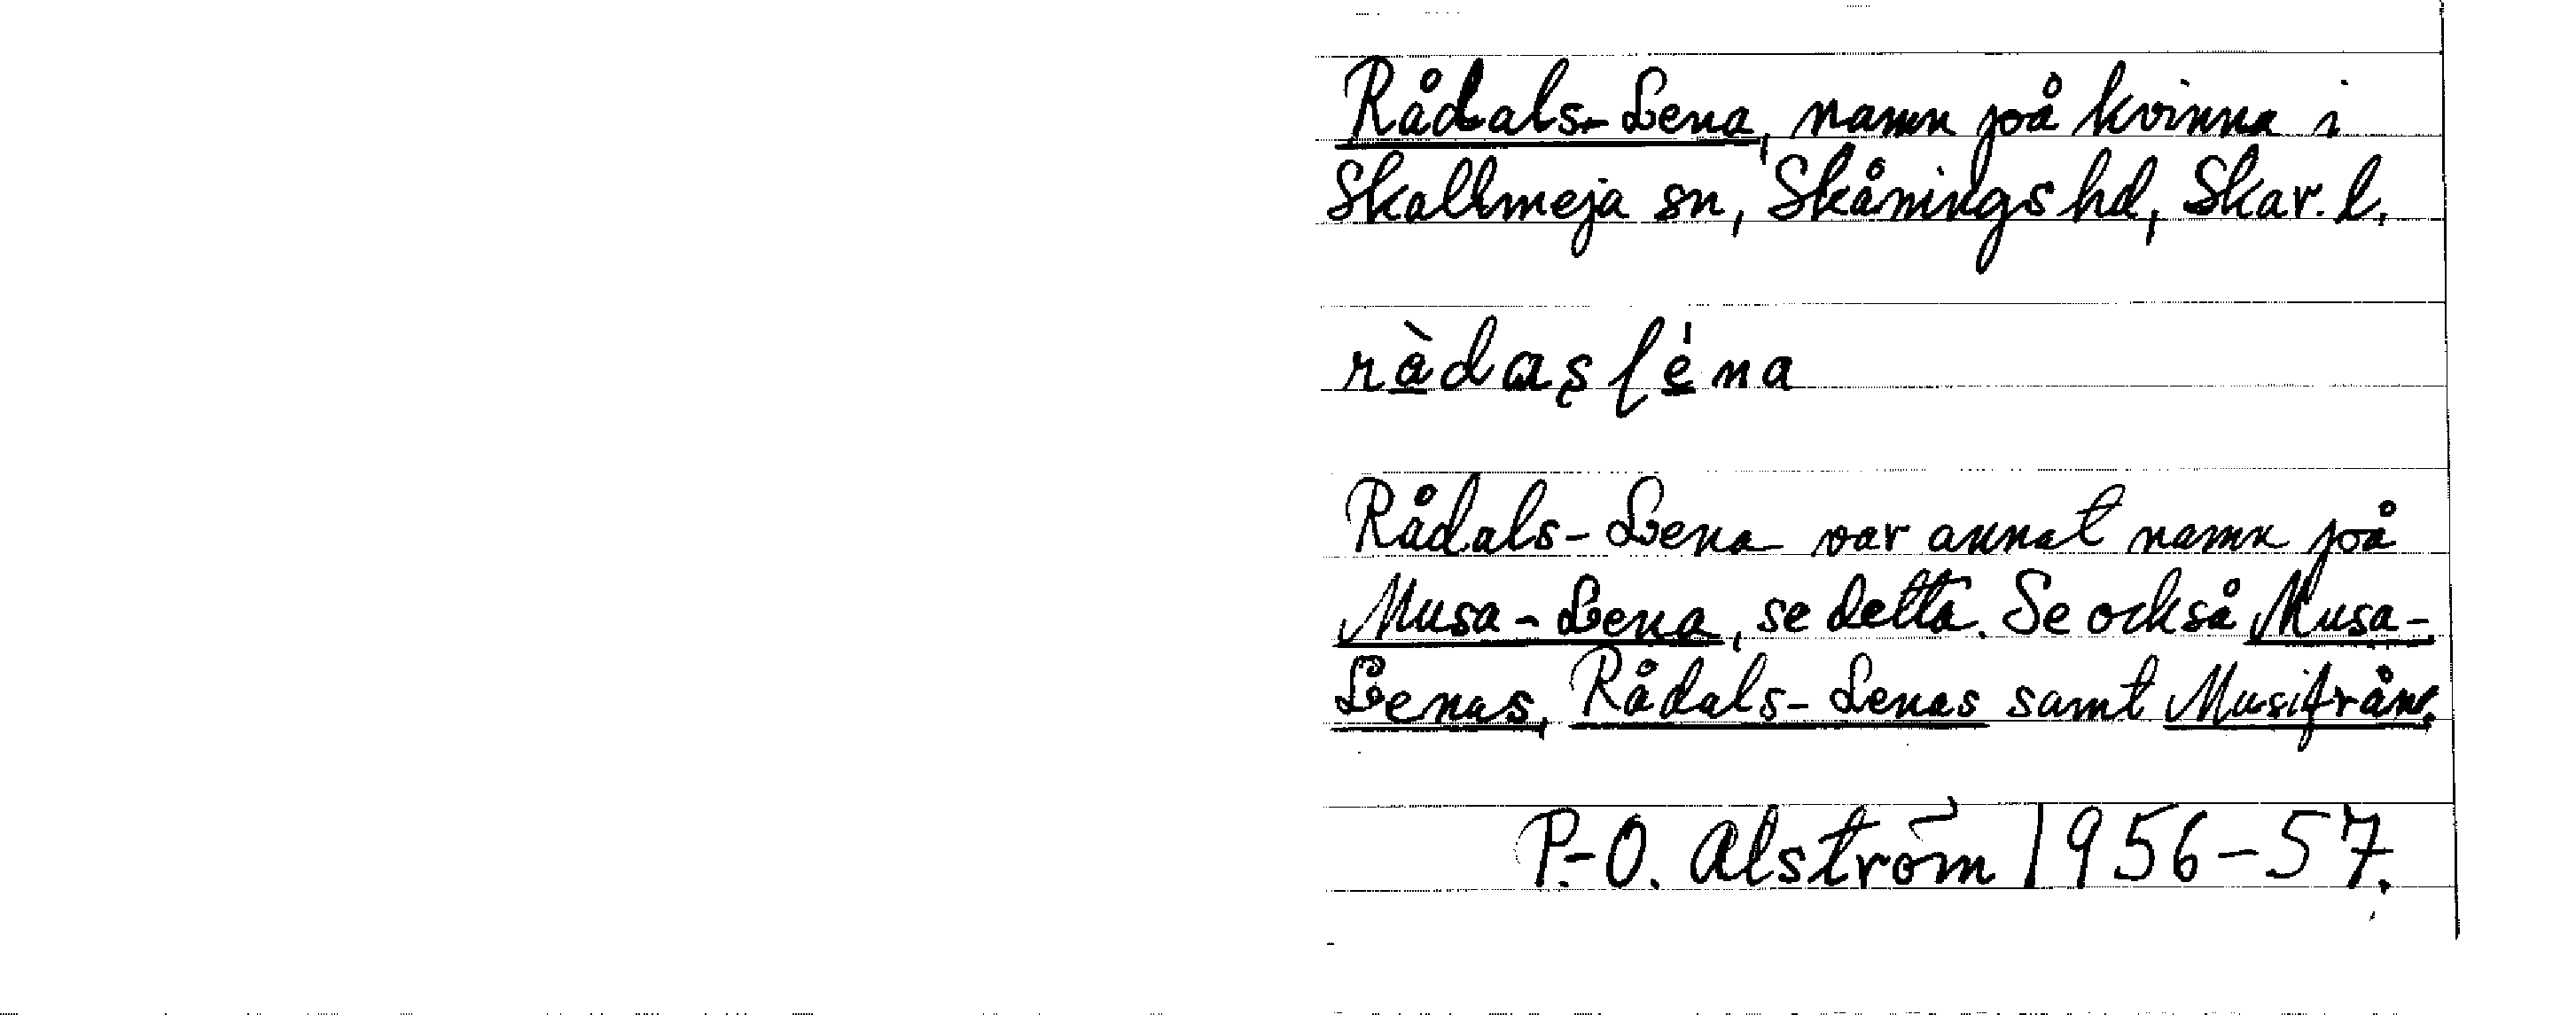 Rådals-Lena, namn på kvinna i
Skallmeja sn, Skånings hd, Skar. l.
rådasléna
Rådals-Lena var annat namn på
Musa-Lena, se detta. Se också Musa-
Lenas, Rådals-Lenas samt
P.-O. Alström 1956-57.